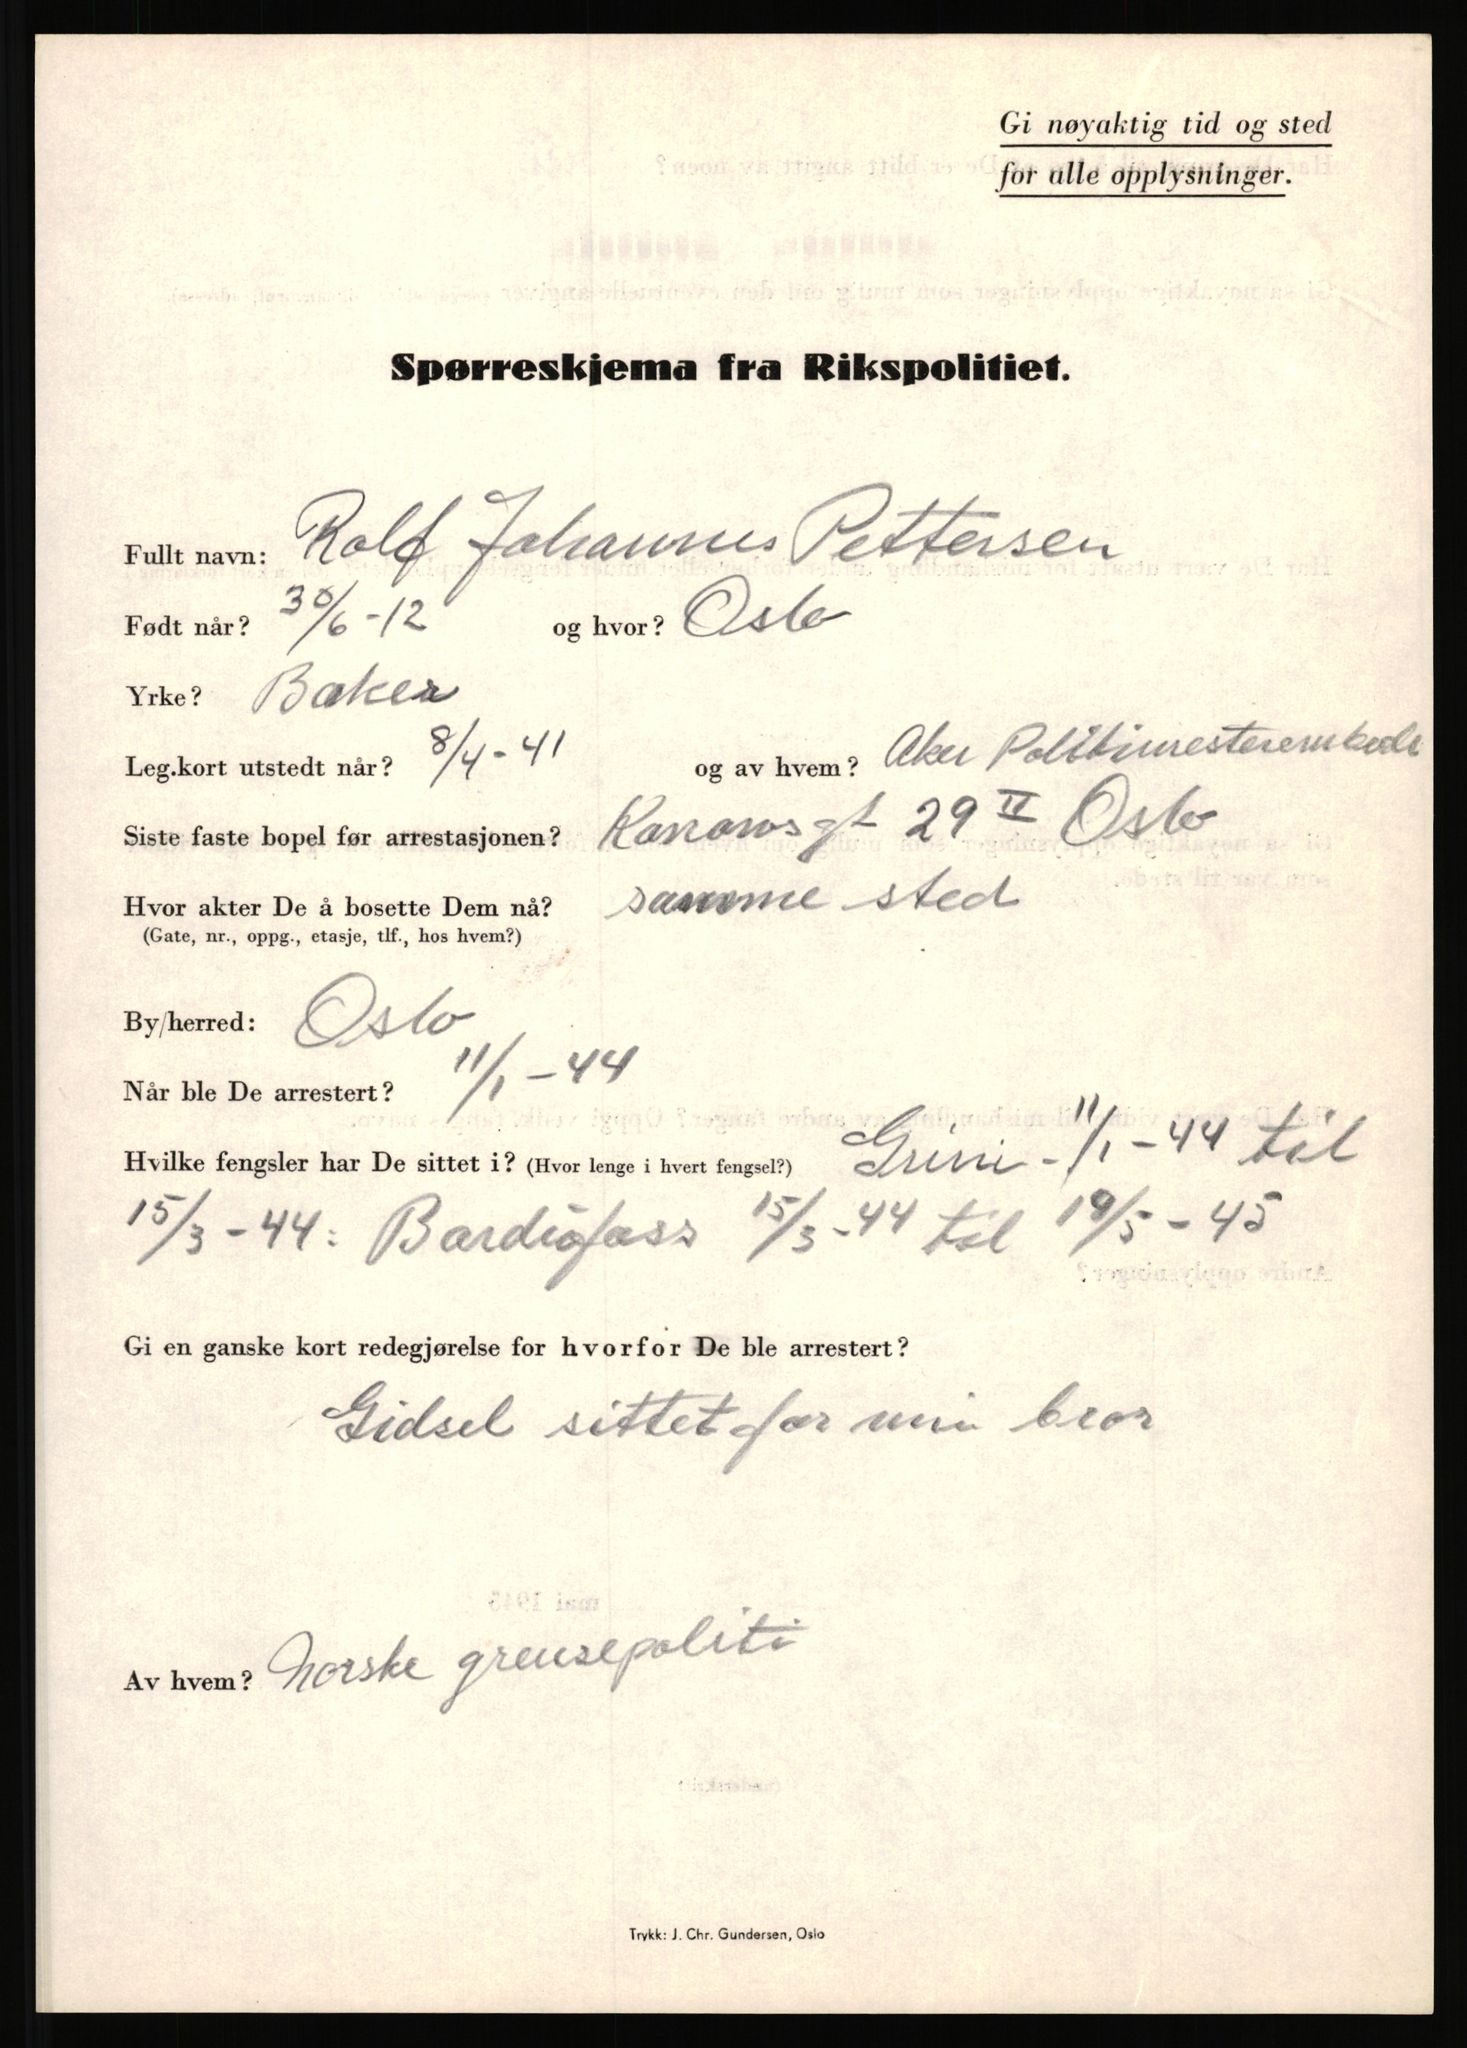 Gi nøyaktig tid og sted
for alle opplysninger.
Spørreskjema fra Rikspolitiet.
Fullt navn: Rolf Johannes Pettersen
Født når? 30/6-12 og hvor? Oslo
Yrke? Baker
Leg.kort utstedt når? 8/4-41 og av hvem? Aker Politimesterembede
Siste faste bopel før arrestasjonen? gt 29 II Oslo
Hvor akter De å bosette Dem nå? samme sted
(Gate, nr., oppg., etasje, tlf., hos hvem?)
By/herred: Oslo
Når ble De arrestert? 11/1-44
Hvilke fengsler har De sittet i? (Hvor lenge i hvert fengsel?) Grini - 11/1-44 til
15/3-44: Bardiofoss 15/3-44 til 19/5-45
Gi en ganske kort redegjørelse for hvorfor De ble arrestert?
Gidsel sittet for min bror
Av hvem? Norske grensepoliti
Trykk: J. Chr. Gundersen, Oslo